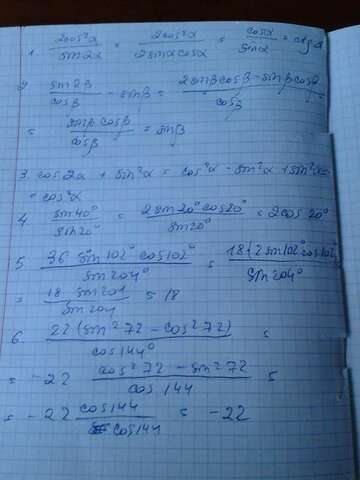 1. 2cos²α / sin2α = 2cos²α / 2sinαcosα = cosα / sinα = ctgα
2 sin2β / cosβ - sinβ = 2sinβcosβ - sinβcosβ / cosβ =
= sinβcosβ / cosβ = sinβ
3. cos2α + sin²α = cos²α - sin²α + sin²α =
= cos²α
4 sin40° / sin20° = 2sin20°cos20° / sin20° = 2cos20°
5 36 sin102° cos102° / sin204° = 18·2sin102°cos102° / sin204°
= 18 sin204 / sin204 = 18
6. 22(sin²72 - cos²72) / cos144° =
= -22 cos²72 - sin²72 / cos144 =
= -22 cos144 / cos144 = -22